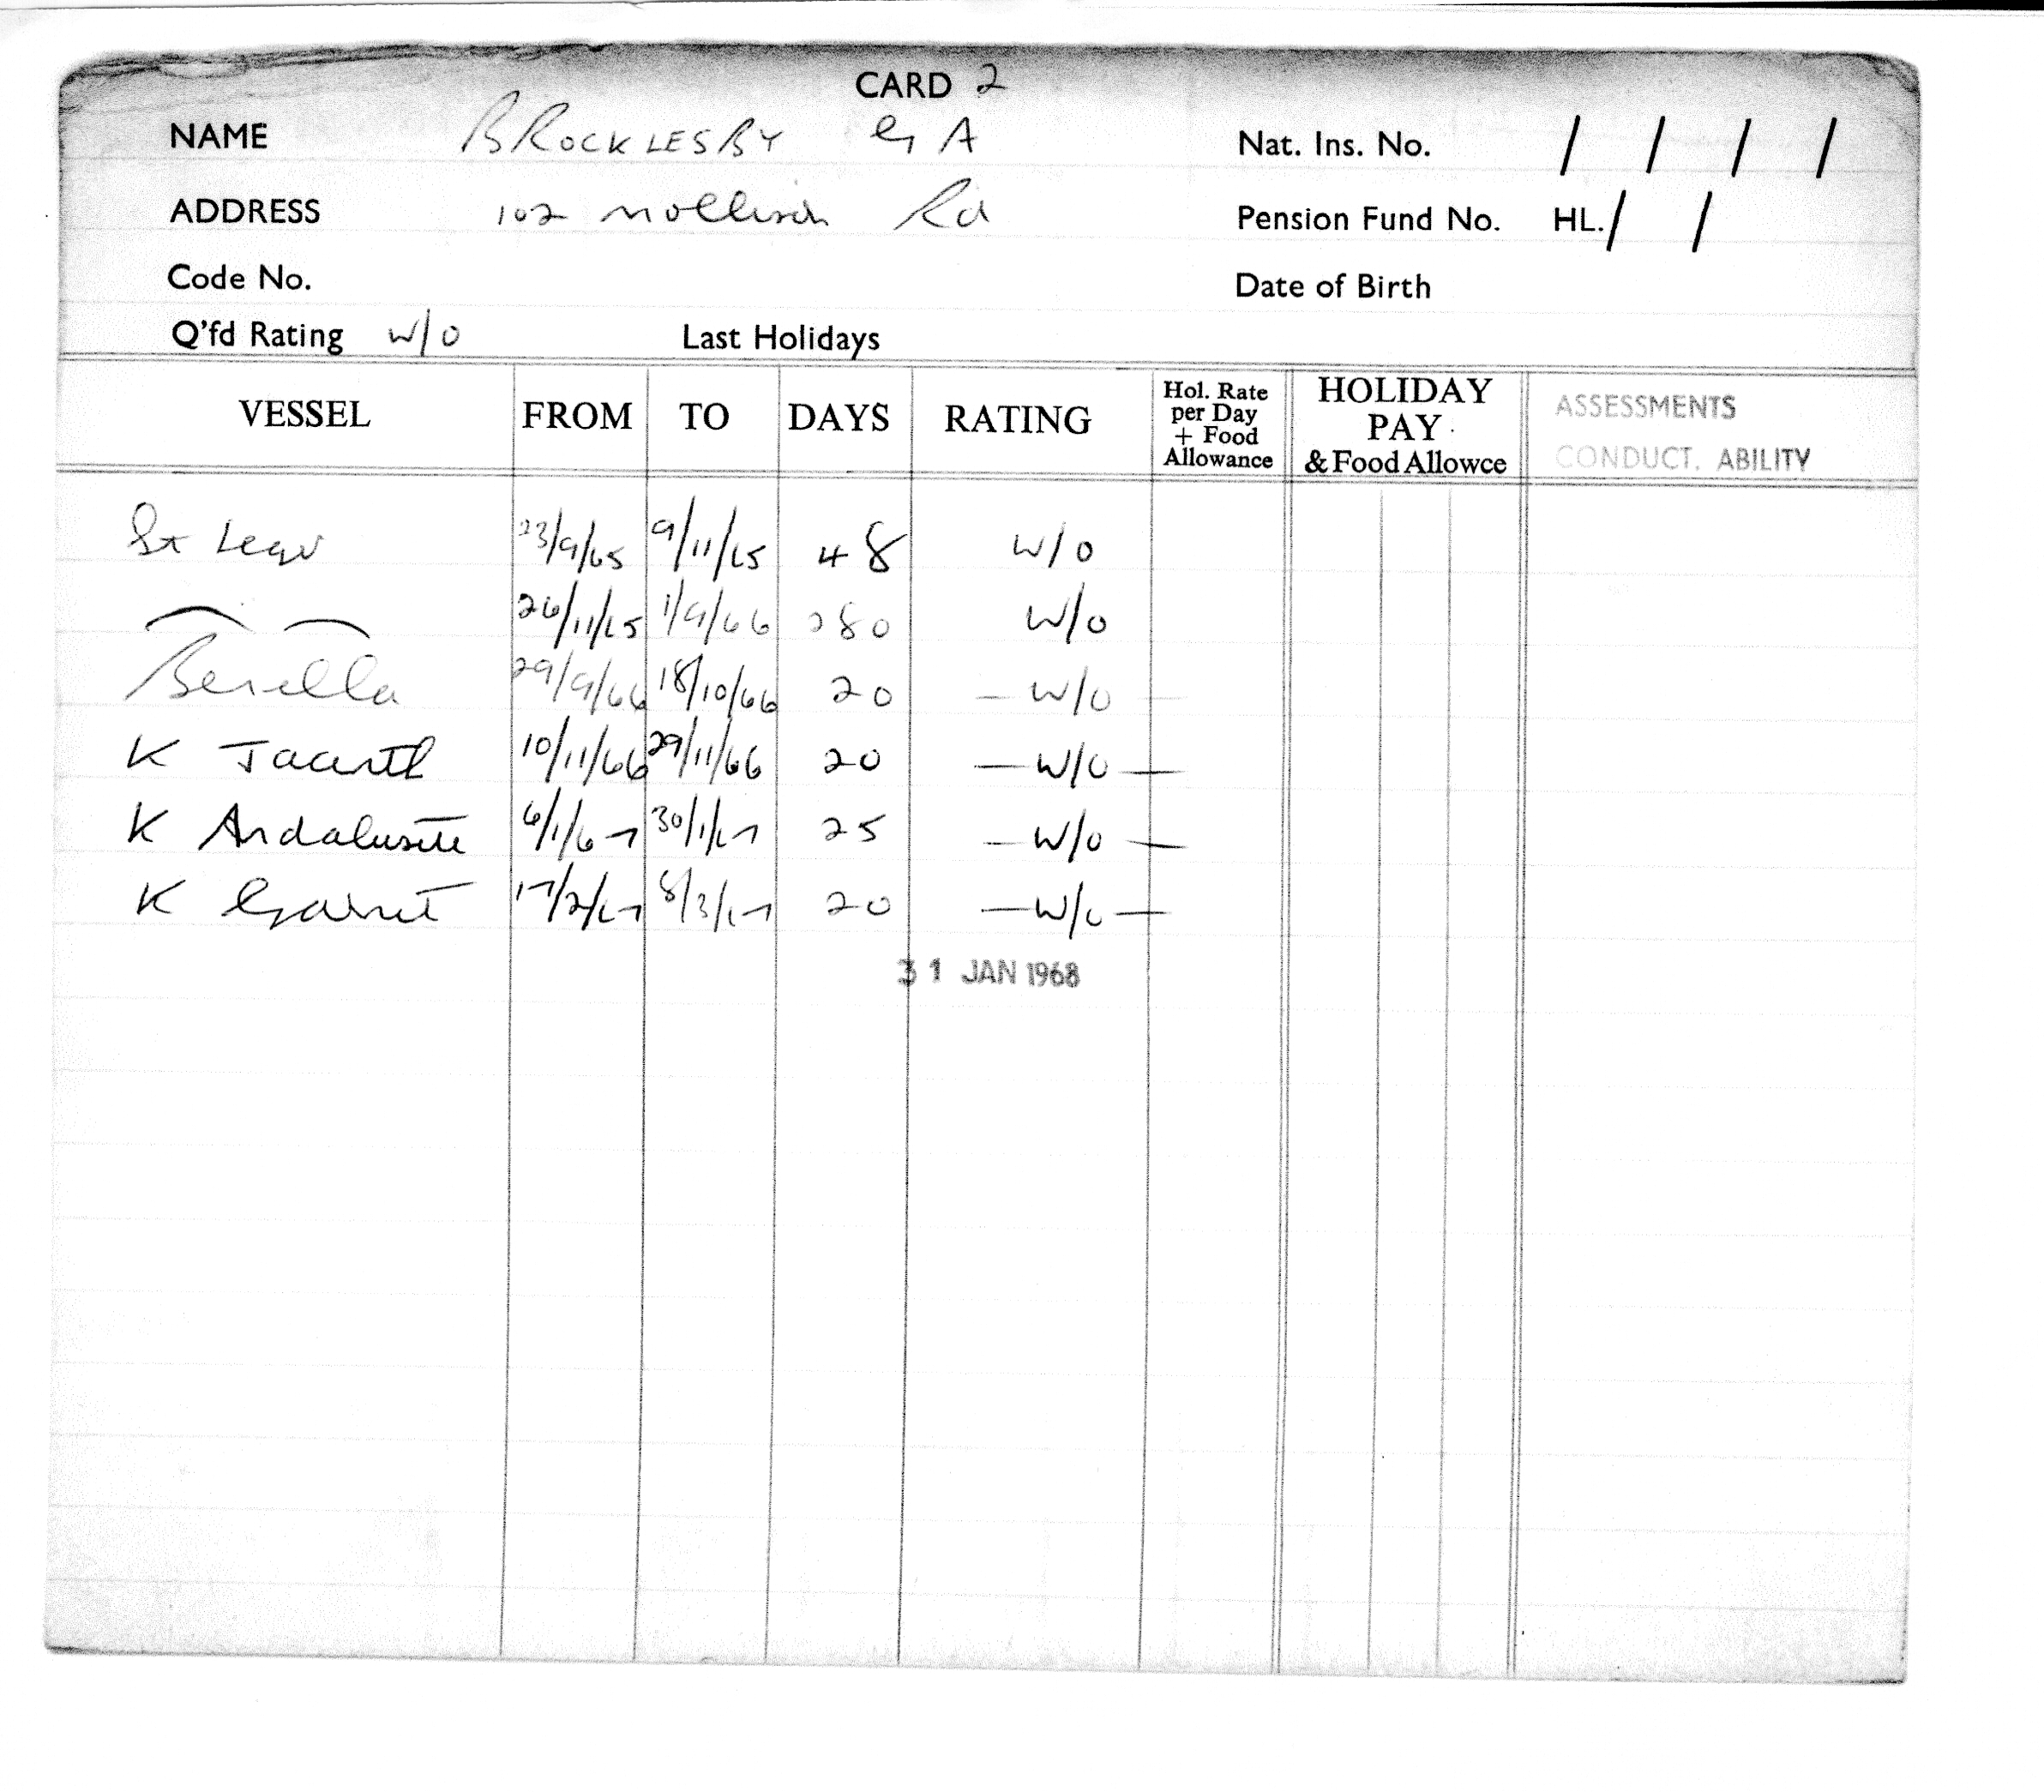 CARD 2
NAME BROCKLESBY G A Nat. Ins. No. / / / /
ADDRESS 102 Mollison Rd Pension Fund No. HL./ /
Code No. Date of Birth
Q'fd Rating W/O Last Holidays
VESSEL FROM TO DAYS RATING Hol. Rate per Day + Food Allowance HOLIDAY PAY & Food Allowce ASSESSMENTS CONDUCT. ABILITY
St Leger 23/9/65 9/11/65 48 W/O
26/11/65 1/9/66 280 W/O
Benella 29/9/66 18/10/66 20 — W/O —
K Jacinth 10/11/66 29/11/66 20 — W/O —
K Andalusite 6/1/67 30/1/67 25 — W/O —
K Garnet 17/2/67 8/3/67 20 — W/O —
31 JAN 1968